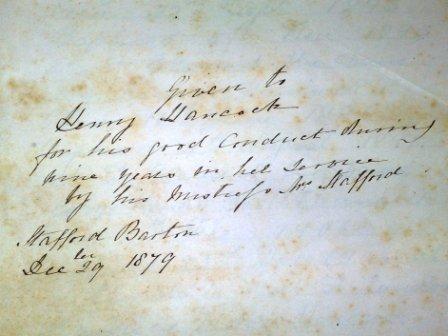 Given to
Henry Hancock
for his good Conduct During
nine years in her Service
by his Mistress Mrs Stafford
Stafford Barton
Decber 29 1879